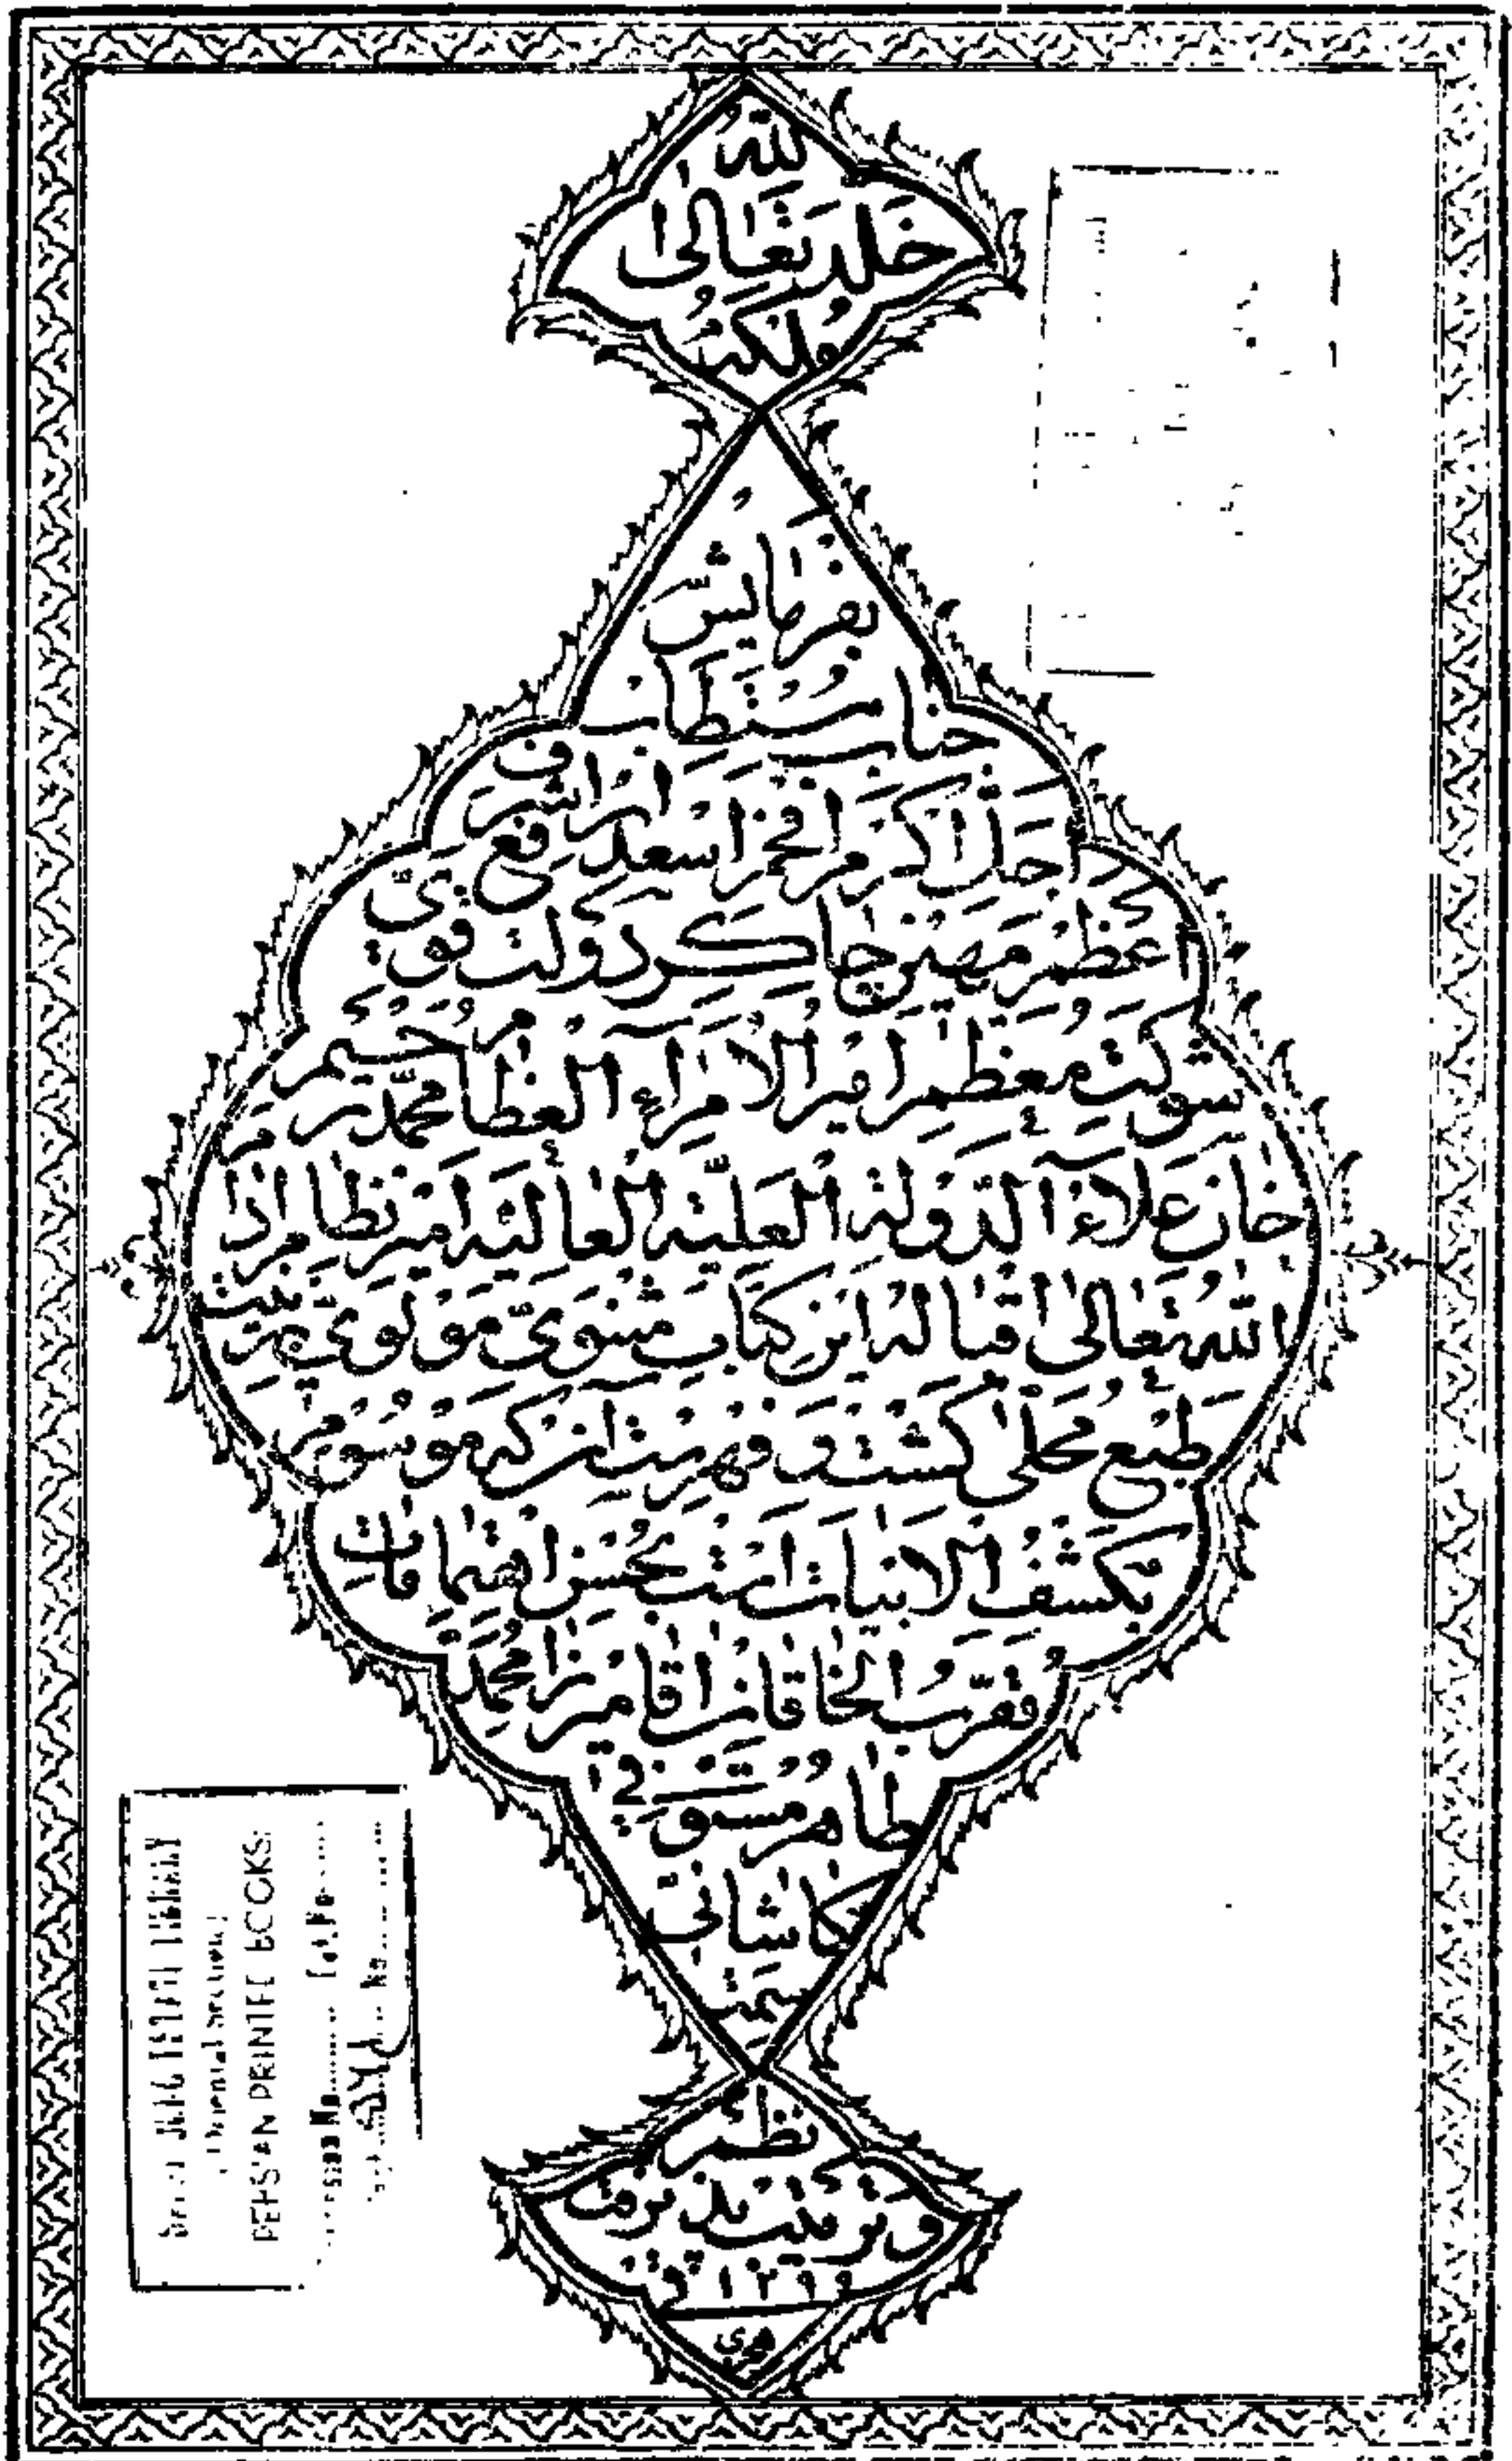 خَلَّدَ اللهُ تَعَالیٰ
مُلْکَهُ
بفرمایش
جناب مستطاب
اجلّ اکرم افخم اسعد ارفع اشرف
اعظم مهین چاکر دولت قوی
شوکت معظم امیر الامراء العظام محمد رحیم
خان علاء الدولة العلیة العالیة امیر نظام ادام
الله تعالی اقباله این کتاب مثنوی مولوی بزینت
طبع محلی گشت و فهرست آن که موسوم
بکشف الابیات است بحسن اهتمامات
مقرب الخاقان آقا میرزا محمد
طاهر مستوفی
کاشانی
سمت
نظم
و ترتیب پذیرفت
فی ۱۲۹۹
هجری
PERSIAN PRINTED BOOKS
Oriental Section